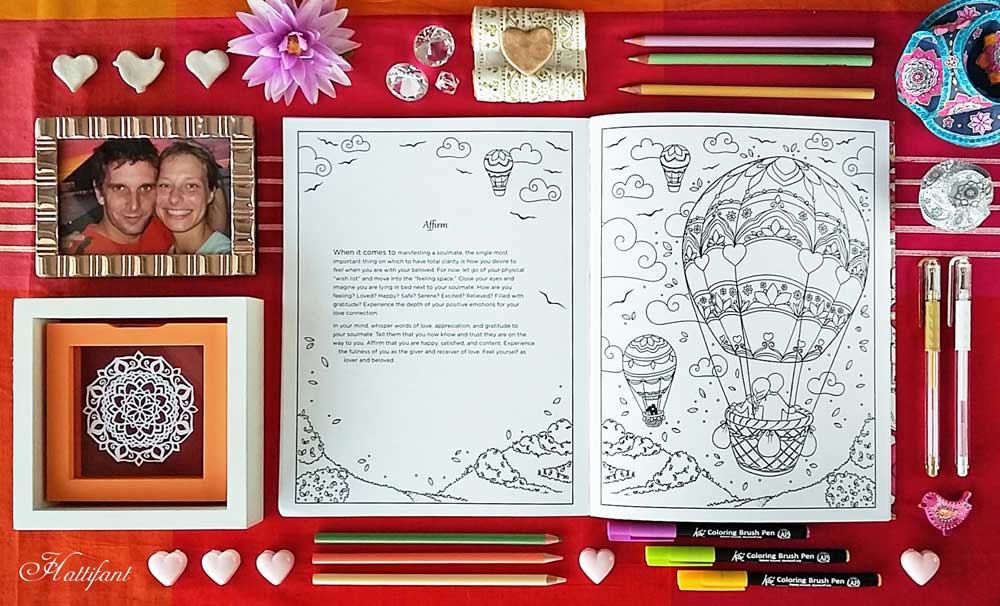 Affirm
When it comes to manifesting a soulmate, the single most
important thing on which to have total clarity is how you desire to
feel when you are with your beloved. For now, let go of your physical
"wish list" and move into the "feeling space." Close your eyes and
imagine you are lying in bed next to your soulmate. How are you
feeling? Loved? Happy? Safe? Serene? Excited? Relieved? Filled with
gratitude? Experience the depth of your positive emotions for your
love connection.
In your mind, whisper words of love, appreciation, and gratitude to
your soulmate. Tell them that you now know and trust they are on the
way to you. Affirm that you are happy, satisfied, and content. Experience
the fullness of you as the giver and receiver of love. Feel yourself as
lover and beloved.
Coloring Brush Pen
Coloring Brush Pen
Coloring Brush Pen
Hattifant